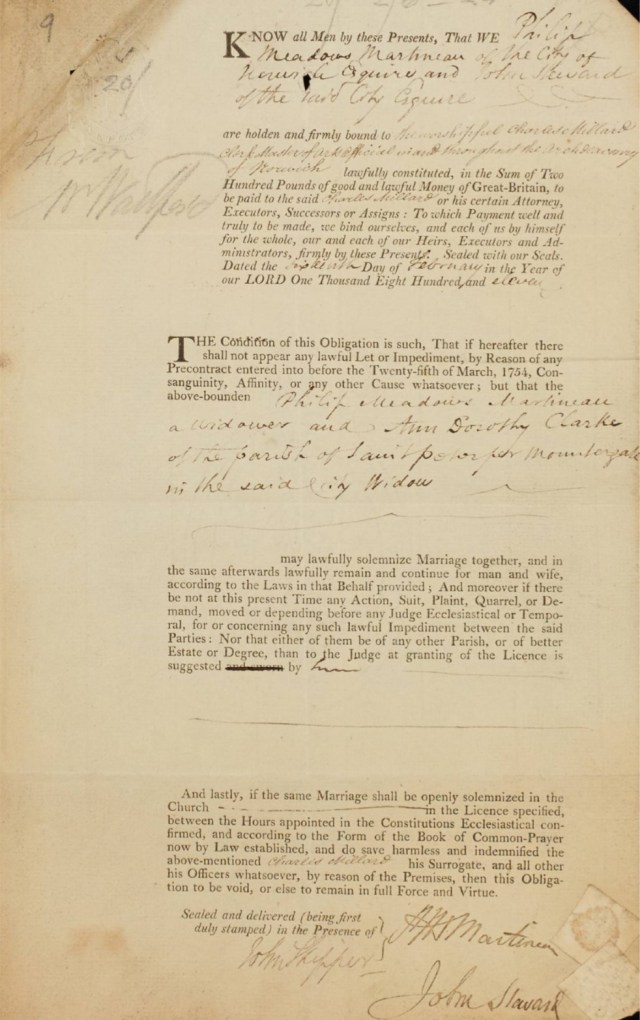 9
20/
From
KNOW all Men by these Presents, That WE Philip
Meadows Martineau of the City of
Norwich Esquire and John Steward
of the said City Esquire
are holden and firmly bound to the worshipful Charles Millard
Clerk Master of Arts Official in and throughout the Archdeaconry
of Norwich lawfully constituted, in the Sum of Two
Hundred Pounds of good and lawful Money of Great-Britain, to
be paid to the said Charles Millard or his certain Attorney,
Executors, Successors or Assigns: To which Payment well and
truly to be made, we bind ourselves, and each of us by himself
for the whole, our and each of our Heirs, Executors and Ad-
ministrators, firmly by these Presents. Sealed with our Seals.
Dated the Day of February in the Year of
our LORD One Thousand Eight Hundred and eleven
THE Condition of this Obligation is such, That if hereafter there
shall not appear any lawful Let or Impediment, by Reason of any
Precontract entered into before the Twenty-fifth of March, 1754, Con-
sanguinity, Affinity, or any other Cause whatsoever; but that the
above-bounden Philip Meadows Martineau
a Widower and Ann Dorothy Clarke
of the parish of Saint peter per Mountergate
in the said City Widow
may lawfully solemnize Marriage together, and in
the same afterwards lawfully remain and continue for man and wife,
according to the Laws in that Behalf provided; And moreover if there
be not at this present Time any Action, Suit, Plaint, Quarrel, or De-
mand, moved or depending before any Judge Ecclesiastical or Tempo-
ral, for or concerning any such lawful Impediment between the said
Parties: Nor that either of them be of any other Parish, or of better
Estate or Degree, than to the Judge at granting of the Licence is
suggested and sworn by him
And lastly, if the same Marriage shall be openly solemnized in the
Church in the Licence specified,
between the Hours appointed in the Constitutions Ecclesiastical con-
firmed, and according to the Form of the Book of Common-Prayer
now by Law established, and do save harmless and indemnified the
above-mentioned Charles Millard his Surrogate, and all other
his Officers whatsoever, by reason of the Premises, then this Obliga-
tion to be void, or else to remain in full Force and Virtue.
Sealed and delivered (being first
duly stamped) in the Presence of
John Skipper
P M Martineau
John Steward